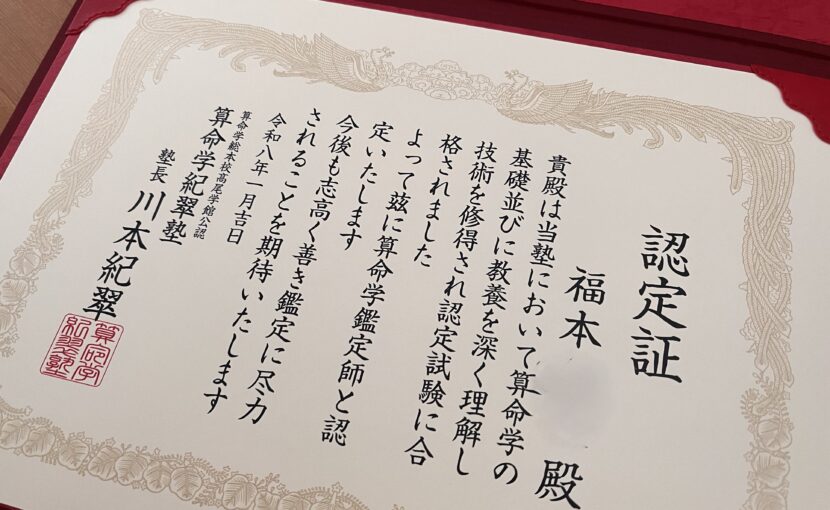 認定証
福本
殿
貴殿は当塾において算命学の
基礎並びに教養を深く理解し
技術を修得され認定試験に合
格されました
よって茲に算命学鑑定師と認
定いたします
今後も志高く善き鑑定に尽力
されることを期待いたします
令和八年一月吉日
算命学総本校高尾学館公認
算命学紀翠塾
塾長 川本紀翠
算命学
紀翠塾